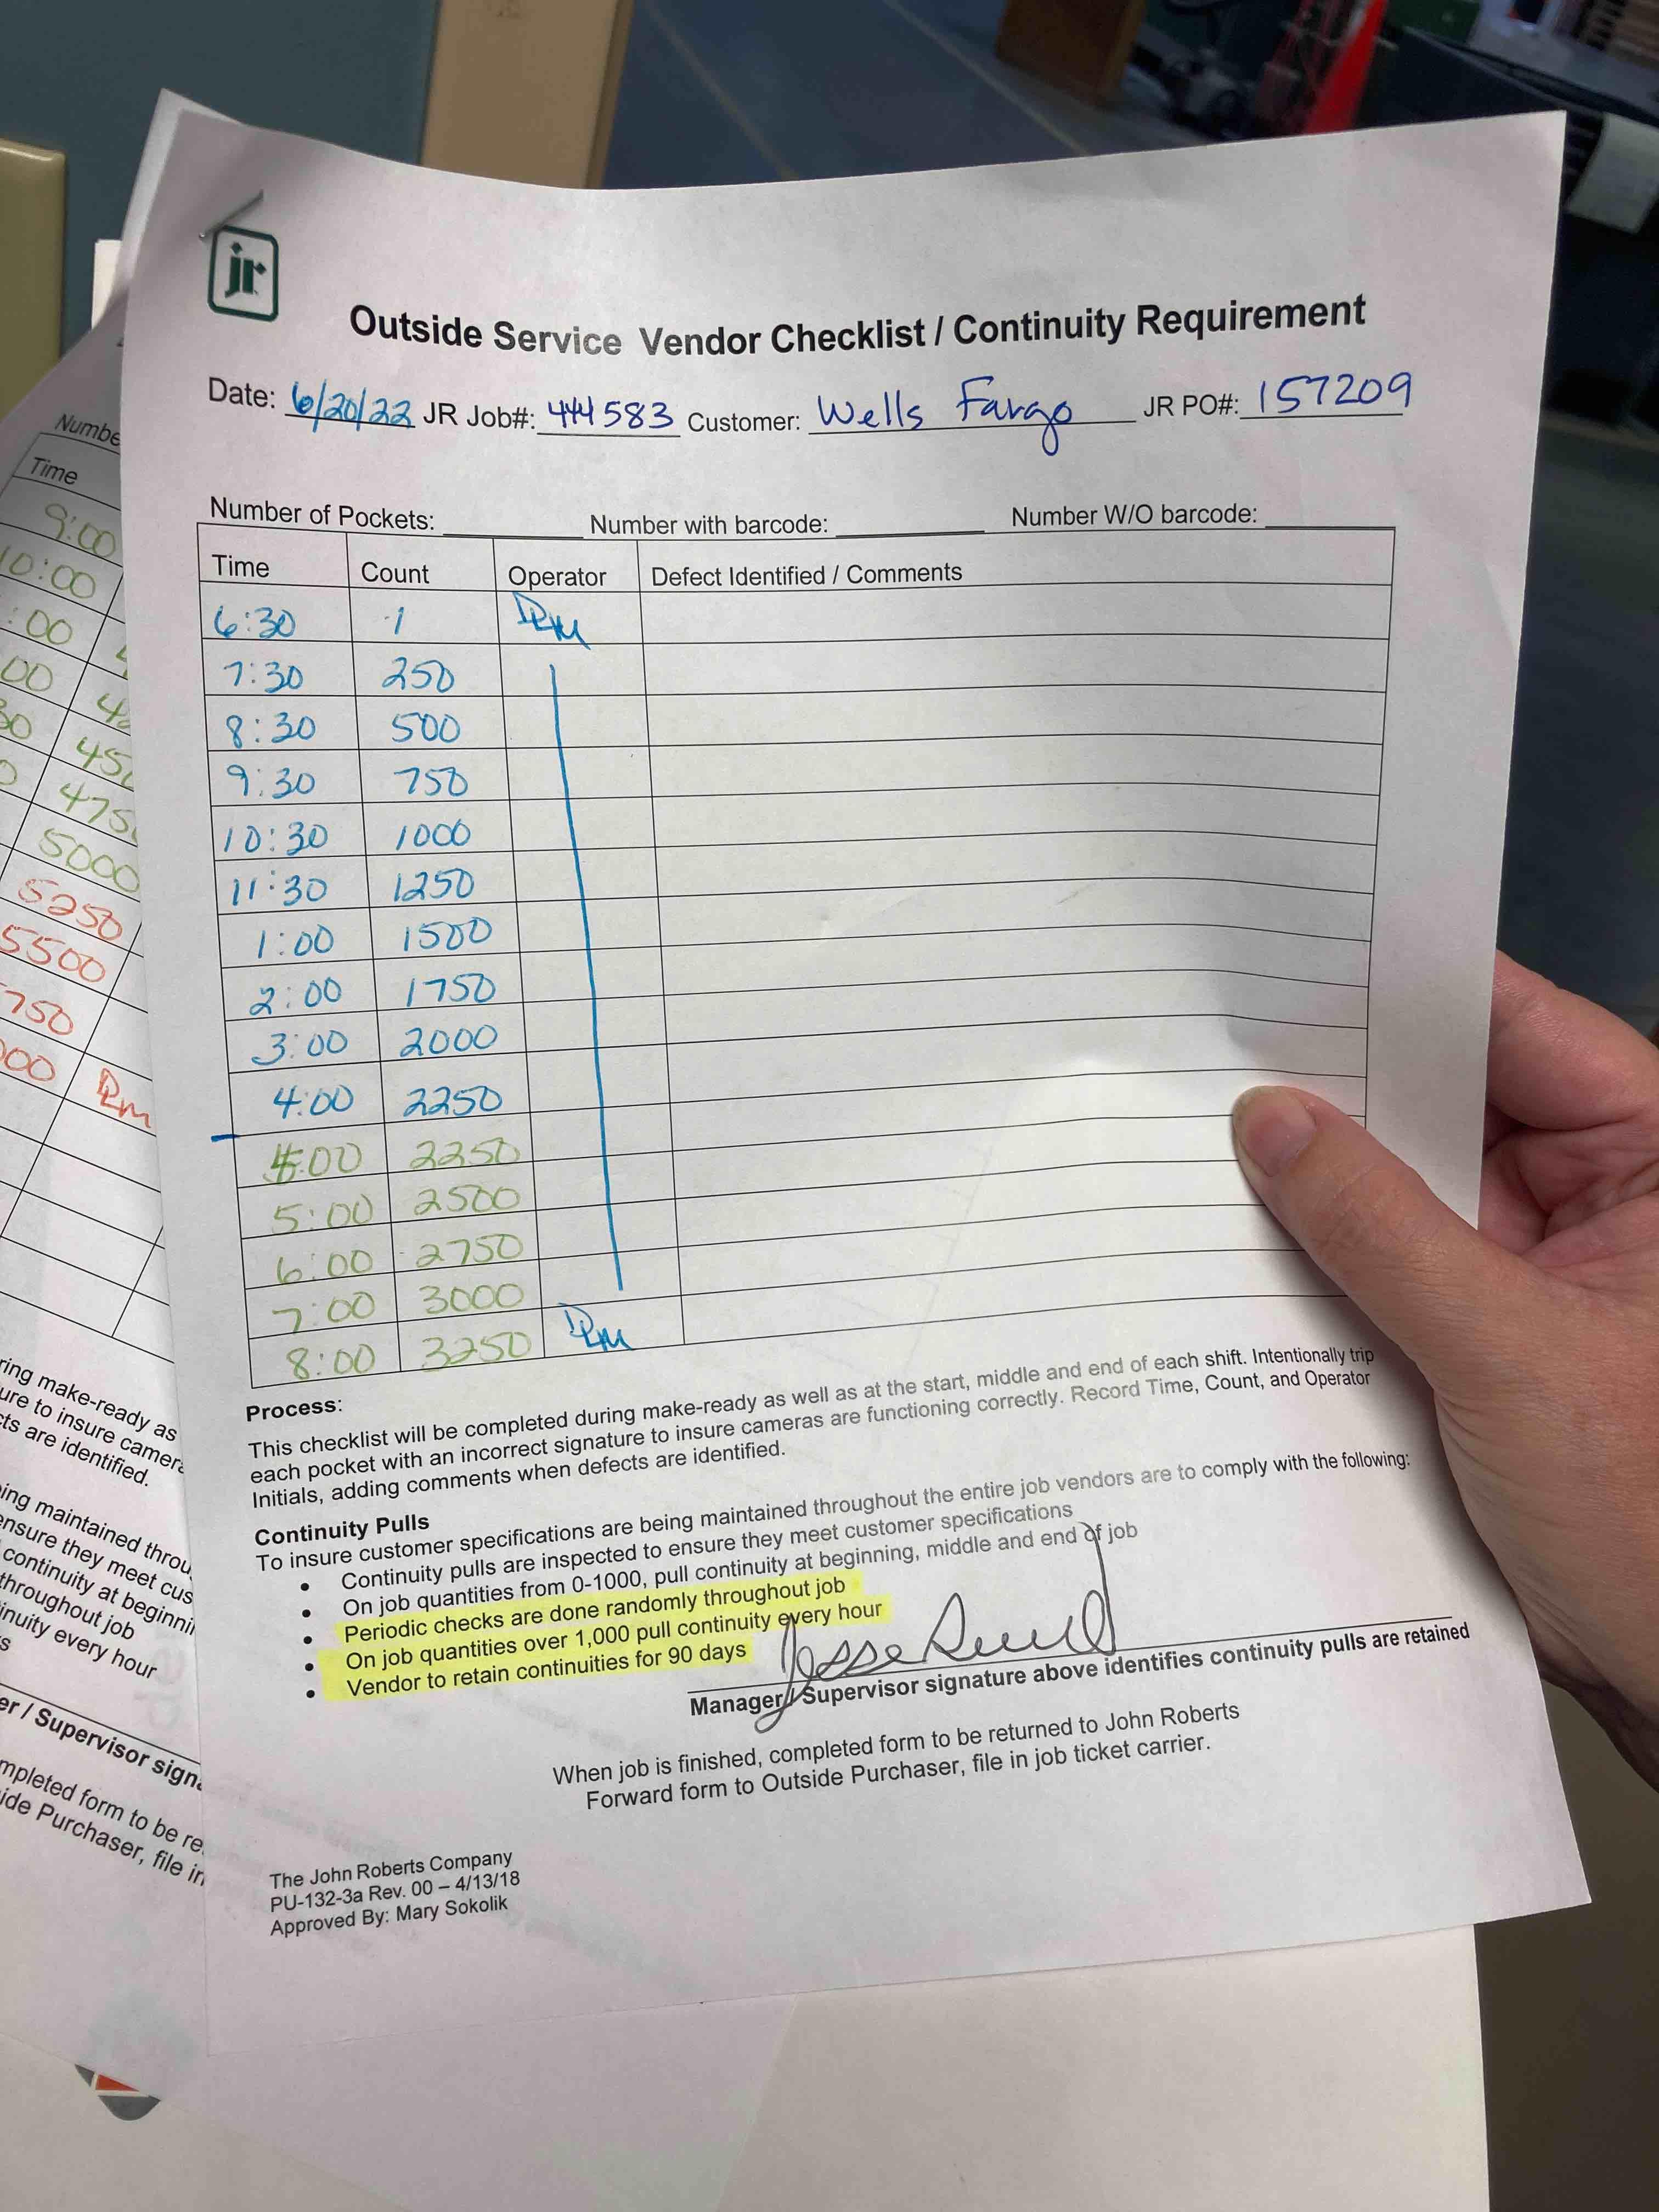 jr
Outside Service Vendor Checklist / Continuity Requirement
Date: 6/20/22 JR Job#: 444583 Customer: Wells Fargo JR PO#: 157209
Number of Pockets: Number with barcode: Number W/O barcode:
Time Count Operator Defect Identified / Comments
6:30 1 DLM
7:30 250
8:30 500
9:30 750
10:30 1000
11:30 1250
1:00 1500
2:00 1750
3:00 2000
4:00 2250
:00 2250
5:00 2500
6:00 2750
7:00 3000
8:00 3250 DLM
Process:
This checklist will be completed during make-ready as well as at the start, middle and end of each shift. Intentionally trip
each pocket with an incorrect signature to insure cameras are functioning correctly. Record Time, Count, and Operator
Initials, adding comments when defects are identified.
Continuity Pulls
To insure customer specifications are being maintained throughout the entire job vendors are to comply with the following:
• Continuity pulls are inspected to ensure they meet customer specifications
• On job quantities from 0-1000, pull continuity at beginning, middle and end of job
• Periodic checks are done randomly throughout job
• On job quantities over 1,000 pull continuity every hour
• Vendor to retain continuities for 90 days
Jesse
Manager / Supervisor signature above identifies continuity pulls are retained
When job is finished, completed form to be returned to John Roberts
Forward form to Outside Purchaser, file in job ticket carrier.
The John Roberts Company
PU-132-3a Rev. 00 – 4/13/18
Approved By: Mary Sokolik
Numbe
Time
9:00
10:00
:00
00
30 45
0 475
5000
5250
5500
750
000 DLM
ring make-ready as
ure to insure camera
cts are identified.
ing maintained throu
ensure they meet cus
continuity at beginni
throughout job
inuity every hour
s
er / Supervisor signa
mpleted form to be re
ide Purchaser, file in